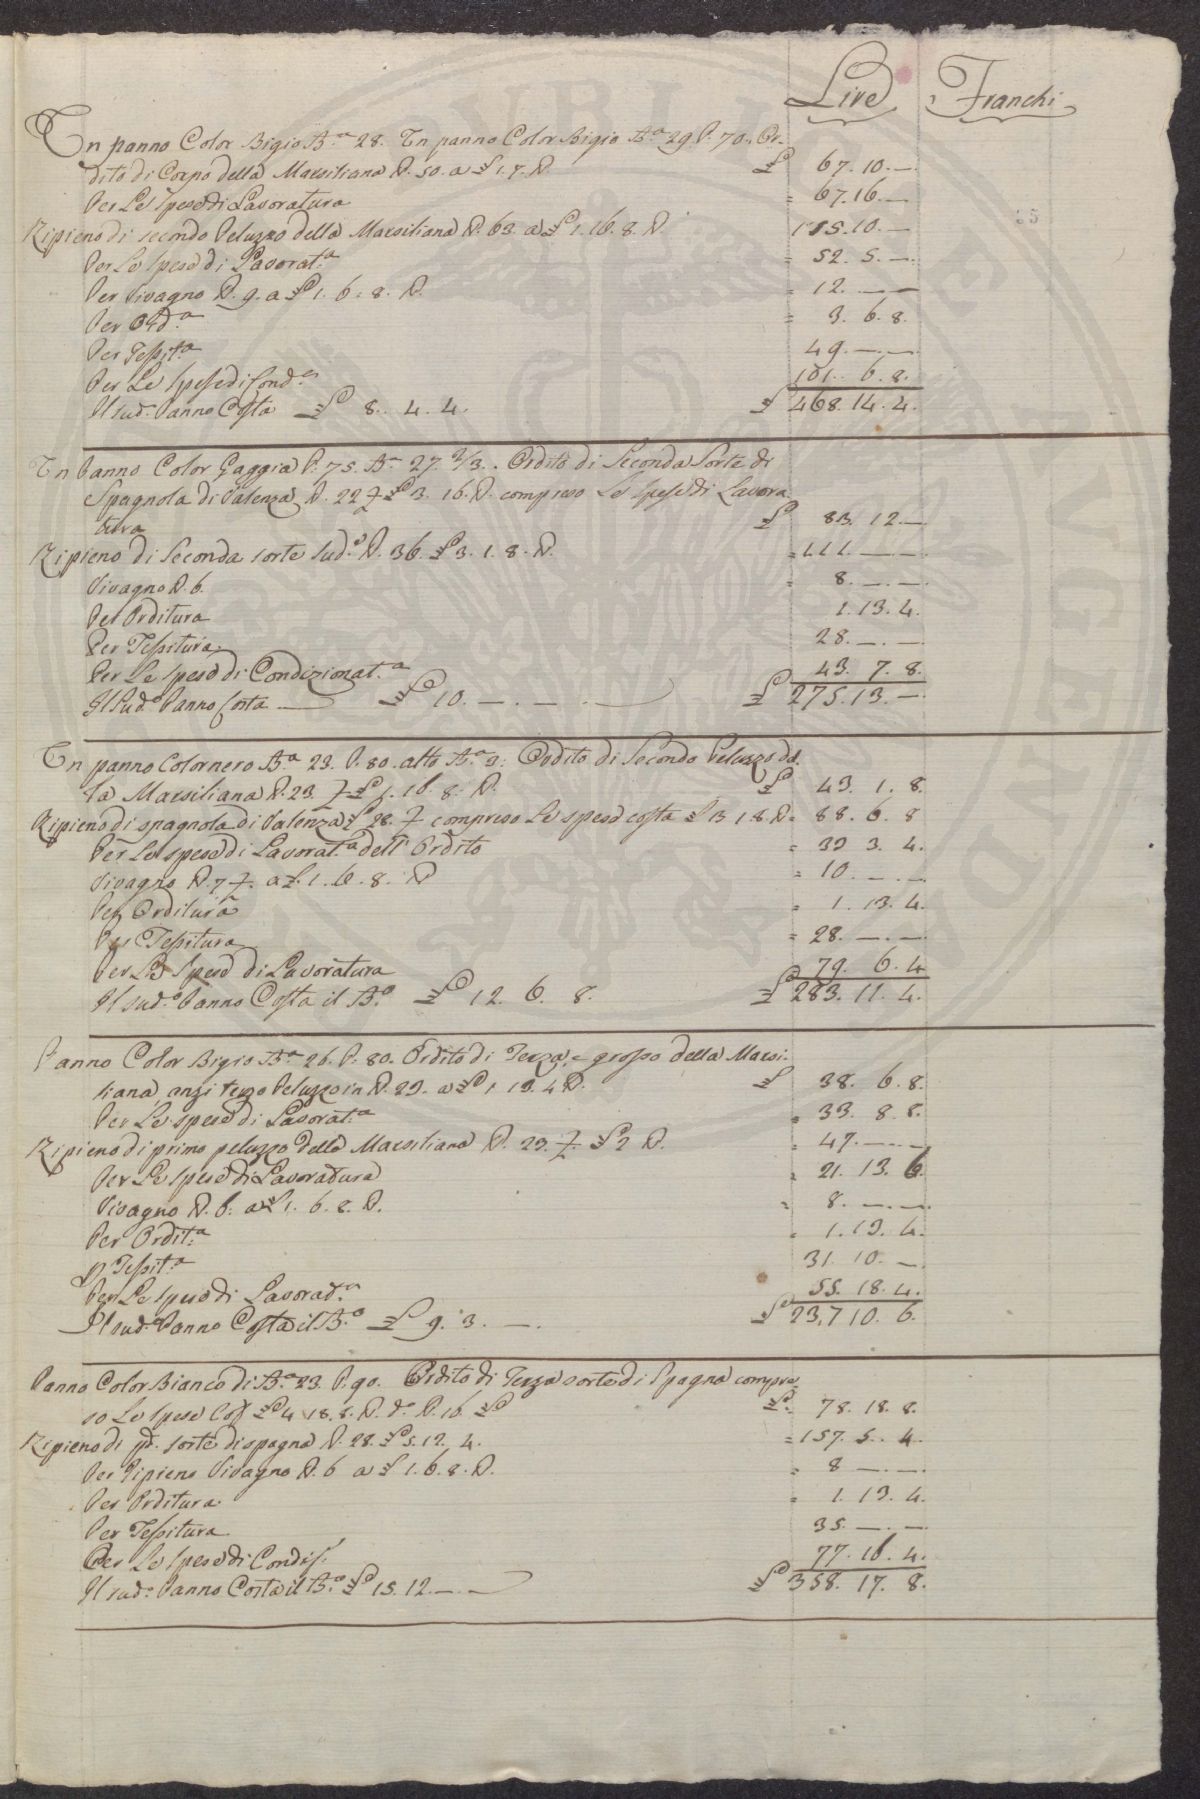 Lire Franchi
Un panno Color Bigio B.a 28. Un panno Color Bigio B.a 29. P. 70. Or-
dito di Corpo della Marsiliana P. 50. a £ 1. 7. P. £ 67. 10. —
Per Le Spese di Lavoratura = 67. 16. —
Ripieno di secondo Peluzzo della Marsiliana P. 63. a £ 1. 16. 8. P. 115. 10. —
Per Le Spese di Lavorat.a = 52. 5. —
Per Vivagno P. 9. a £ 1. 6. 8. P. = 12. — —
Per Ord.a = 3. 6. 8.
Per Tessit.a 49. — —
Per Le Spese di Cond.e 101. 6. 8.
Il sud.o Panno Costa £ 8. 4. 4. £ 468. 14. 4.
Un Panno Color Gaggia P. 75. B.a 27. 2/3. Ordito di Seconda Sorte di
Spagnola di Valenza P. 22 £ 3. 16. P. compreso Le Spese di Lavora
tura £ 83. 12. —
Ripieno di Seconda sorte sud.o P. 36. £ 3. 1. 8. P. = 111. — —
Vivagno P. 6. = 8. — —
Per Orditura 1. 13. 4.
Per Tessitura 28. — —
Per Le Spese di Condizionat.a 43. 7. 8.
Il Sud.o Panno Costa £ 10. — . — . £ 275. 13. —
Un panno Color nero B.a 23. P. 80. alto B.a 2: Ordito di Secondo Peluzzo del
la Marsiliana P. 23. £ 1. 16. 8. P. £ 43. 1. 8.
Ripieno di spagnola di Valenza 28. compreso Le spese costa £ 3 1. 8. P. = 88. 6. 8
Per Le spese di Lavorat.a dell' Ordito = 33 3. 4.
Vivagno P. 7 a £ 1. 6. 8. P = 10. — —
Per Orditura = 1. 13. 4.
Per Tessitura = 28. — —
Per Le Spese di Lavoratura 79. 6. 4
Il sud.o Panno Costa il B.o £ 12. 6. 8. £ 283. 11. 4.
Panno Color Bigio B.a 26. P. 80. Ordito di Terza, e grosso della Marsi-
liana, anzi terzo Peluzzo in P. 29. a £ 1. 13. 4 P. £ 38. 6. 8.
Per Le spese di Lavorat.a = 33. 8. 8.
Ripieno di primo peluzzo della Marsiliana P. 23. £ 2 P. = 47. — —
Per Le Spese di Lavoradura = 21. 13. 6.
Vivagno P. 6. a £ 1. 6. 8. P. = 8. — —
Per Ordit.a = 1. 13. 4.
p. Tessit.a 31. 10. —
Per Le Spese di Lavorad.a 55. 18. 4.
Il sud.o Panno Costa il B.o £ 9. 3. — £ 23,7 10. 6.
Panno Color Bianco di B.a 23. P. 90. Ordito di Terza sorte di Spagna compre
so Le Spese Cos £ 4 18. 8. P. d.o P. 16 £ £ 78. 18. 8.
Ripieno di p.a sorte di spagna P. 28. £ 5. 12. 4. = 157. 5. 4.
Per Ripieno Vivagno P. 6 a £ 1. 6. 8. P. = 8 — —
Per Orditura = 1. 13. 4.
Per Tessitura 35. — —
Per Le Spese di Condiz. 77. 16. 4.
Il sud.o Panno Costa il B.o £ 15. 12. — £ 358. 17. 8.